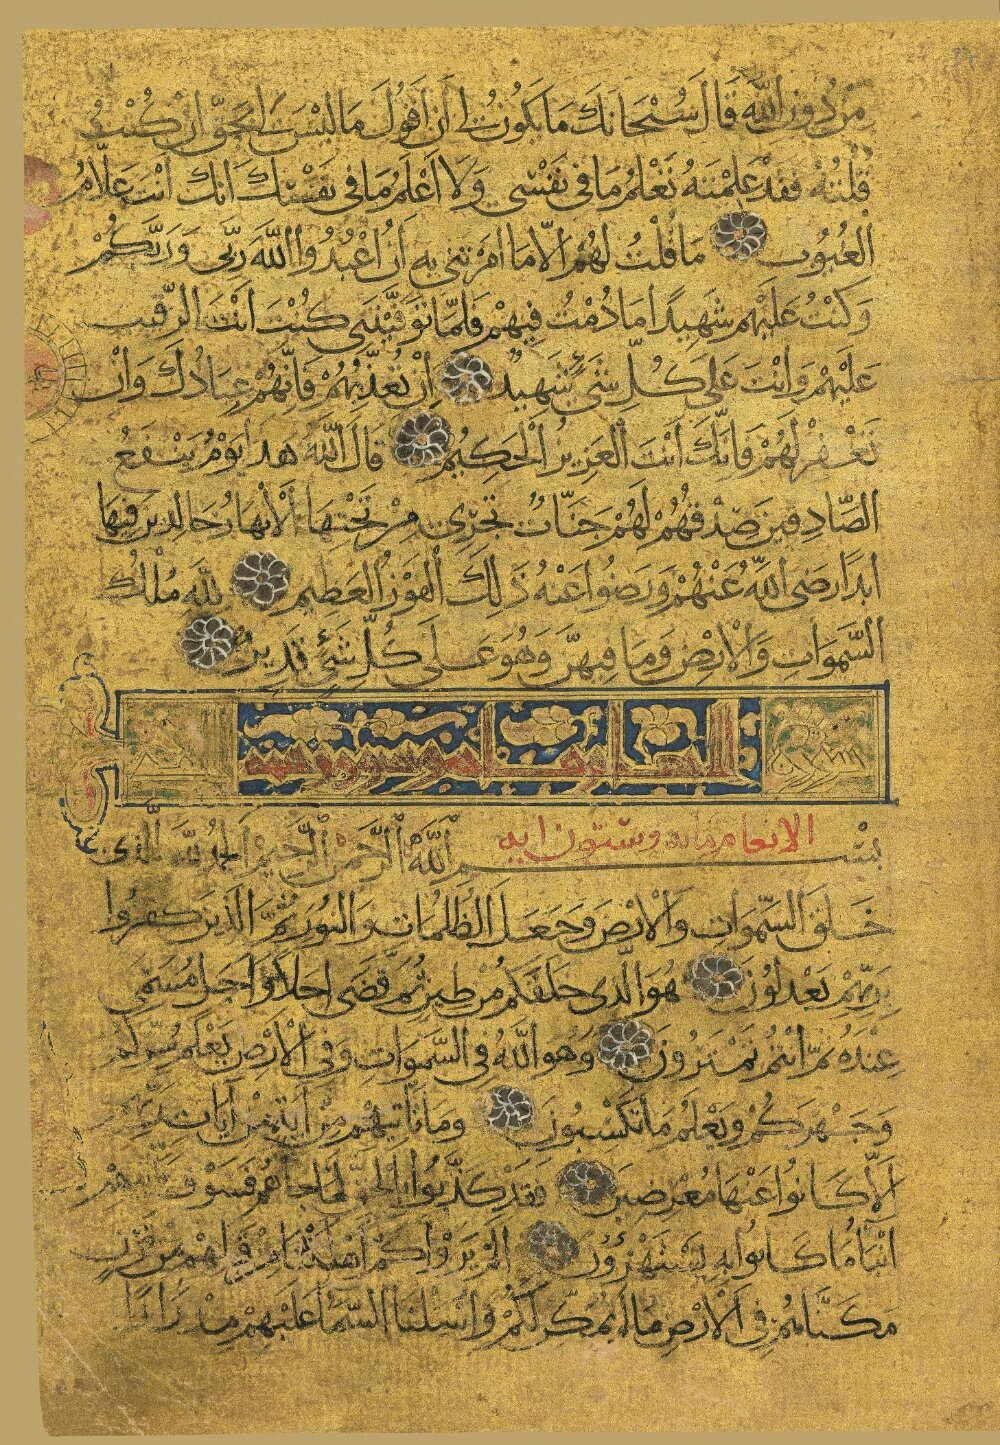 من دون الله قال سُبْحَانَكَ ما يكُونُ لي أنْ أقُولَ مَا لَيْسَ لي بحقّ انْ كُنْتُ
قلتهُ فقدْ عَلِمْتَهُ تَعْلمُ مَا في نَفْسي وَلَا أعْلمُ مَا في نَفْسِكَ انّكَ انْتَ عَلّامُ
الغُيُوب مَا قُلْتُ لهُمْ الّا مَا امَرْتني بهِ أنُ اعْبُدُوا اللهَ رَبّي وَرَبّكُمْ
وَكُنْتُ عَلَيْهِم شَهِيدًا مَا دُمْتُ فِيهِمْ فَلَمّا تَوَفّيْتَنِي كُنْتَ انْتَ الرّقيبَ
عَلَيْهِمْ وَانْتَ عَلى كُلّ شَيْءٍ شَهِيدٌ انْ تُعَذّبْهُمْ فَانّهُمْ عِبَادُكَ وَانْ
تَغْفِرْ لَهُمْ فَانّكَ انْتَ العَزِيزُ الْحَكِيمُ قَالَ اللهُ هذا يَوْمُ يَنْفَعُ
الصّادِقينَ صِدْقهُمْ لَهُمْ جَنّاتٌ تجْرِي مِنْ تَحْتِهَا الْأَنهارُ خالدين فيها
ابدًا رَضيَ اللهُ عَنْهُمْ وَرَضُوا عَنْهُ ذَلِكَ الفَوْزُ العَظِيمُ للهِ مُلْكُ
السَّمَوَاتِ وَالْارْضِ وَمَا فِيهِنّ وَهُوَ عَلَى كُلّ شَيْءٍ قَدِيرٌ
الانعام مائة وستون اية
بِسْمِ اللهِ الرَّحْمنِ الرَّحِيمِ الحمدُ للهِ الّذي
خَلَقَ السَّمَوَاتِ وَالْارْضَ وَجَعَلَ الظُّلُمَاتِ وَالنُّورَ ثُمَّ الّذِينَ كفرُوا
بِرَبّهِمْ يَعْدِلُونَ هُوَ الّذي خَلَقَكُمْ مِنْ طِينٍ ثُمّ قَضَى اجَلًا وَاجَلٌ مُسَمّى
عِنْدَهُ ثُمّ انْتُمْ تَمْتَرُونَ وَهُوَ اللهُ فِي السَّمَوَاتِ وَفِي الْارْضِ يَعْلَمُ سِرّكُمْ
وَجَهْرَكُمْ وَيَعْلَمُ مَا تَكْسِبُونَ وَمَا تَأتِيهِمْ مِنْ ايَةٍ مِنْ ايَاتِ رَبّهِمْ
الّا كَانُوا عَنْهَا مُعْرِضِينَ فَقَدْ كَذّبُوا بالْحَقّ لَمّا جَاءَهُمْ فَسَوْفَ يَأتِيهِمْ
انْبَاءُ مَا كَانُوا بِهِ يَسْتَهْزِؤُونَ الَمْ يَرَوْا كَمْ اهْلَكْنَا مِنْ قَبْلِهِمْ مِنْ قَرْنٍ
مَكَنّاهُمْ فِي الْارْضِ مَا لَمْ نُمَكّنْ لَكُمْ وَارْسَلْنَا السّمَاءَ عَلَيْهِمْ مِدْرَارًا